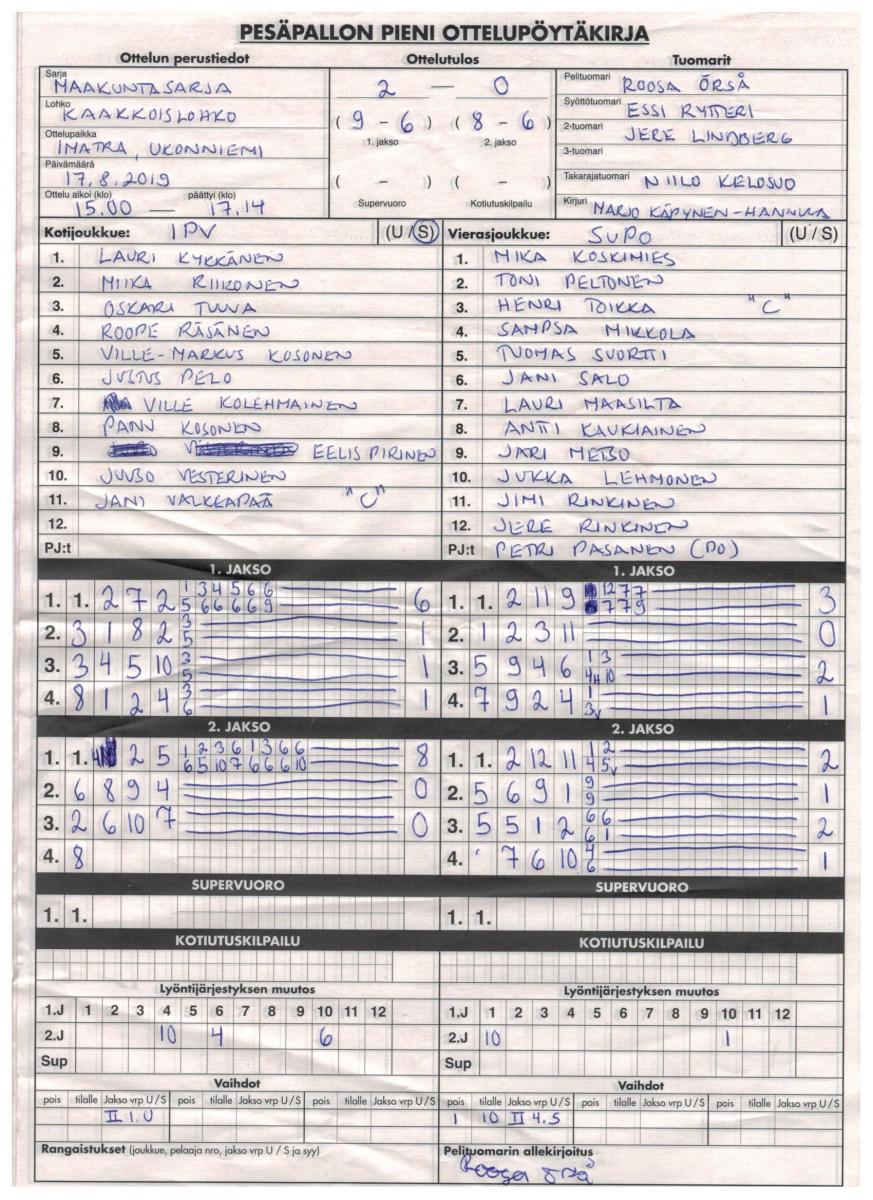 PESÄPALLON PIENI OTTELUPÖYTÄKIRJA
Ottelun perustiedot
Ottelutulos
Tuomarit
Sarja
MAAKUNTASARJA
Lohko
KAAKKOISLOHKO
Ottelupaikka
IMATRA, UKONNIEMI
Päivämäärä
17.8.2019
Ottelu alkoi (klo) päättyi (klo)
15.00 — 17.14
2 — 0
( 9 – 6 ) ( 8 – 6 )
1. jakso 2. jakso
( – ) ( – )
Supervuoro Kotiutuskilpailu
Pelituomari ROOSA ÖRSÅ
Syöttötuomari ESSI RYTTERI
2-tuomari JERE LINDBERG
3-tuomari
Takarajatuomari NIILO KELOSUO
Kirjuri MARJO KÄPYNEN-HANNULA
Kotijoukkue: IPV (U / S)
1. LAURI KYKKÄNEN
2. MIIKA RIIKONEN
3. OSKARI TUUVA
4. ROOPE RÄSÄNEN
5. VILLE-MARKUS KOSONEN
6. JUSTUS PELO
7. VILLE KOLEHMAINEN
8. PANU KOSONEN
9. EELIS PIRINEN
10. JUUSO VESTERINEN
11. JANI VALKEAPÄÄ "C"
12.
PJ:t
Vierasjoukkue: SUPO (U / S)
1. MIKA KOSKIMIES
2. TONI PELTONEN
3. HENRI TOIKKA "C"
4. SAMPSA MIKKOLA
5. TUOMAS SUORTTI
6. JANI SALO
7. LAURI MAASILTA
8. ANTTI KAUKIAINEN
9. JARI METSO
10. JUKKA LEHMONEN
11. JIMI RINKINEN
12. JERE RINKINEN
PJ:t PETRI PASANEN (PO)
1. JAKSO
1. 1. 2 7 2 1 3 4 5 6 6 6
5 6 6 6 6 9
2. 3 1 8 2 3 1
5
3. 3 4 5 10 3 1
5
4. 8 1 2 4 3 1
6
1. JAKSO
1. 1. 2 11 9 12 7 7 3
7 7 9
2. 1 2 3 11 0
3. 5 9 4 6 1 3 2
4H 10
4. 7 9 2 4 1 1
3V
2. JAKSO
1. 1. 2 5 1 2 3 6 1 3 6 6 8
6 5 10 7 6 6 6 10
2. 6 8 9 4 0
3. 2 6 10 7 0
4. 8
2. JAKSO
1. 1. 2 12 11 1 2 2
4 5V
2. 5 6 9 1 9 1
9
3. 5 5 1 2 6 6 2
6 1
4. 7 6 10 4 1
6
SUPERVUORO
1. 1.
SUPERVUORO
1. 1.
KOTIUTUSKILPAILU
KOTIUTUSKILPAILU
Lyöntijärjestyksen muutos
1.J 1 2 3 4 5 6 7 8 9 10 11 12
2.J 10 4 6
Sup
Lyöntijärjestyksen muutos
1.J 1 2 3 4 5 6 7 8 9 10 11 12
2.J 10 1
Sup
Vaihdot
pois tilalle Jakso vrp U / S pois tilalle Jakso vrp U / S pois tilalle Jakso vrp U / S
II 1.U
Vaihdot
pois tilalle Jakso vrp U / S pois tilalle Jakso vrp U / S pois tilalle Jakso vrp U / S
1 10 II 4.S
Rangaistukset (joukkue, pelaaja nro, jakso vrp U / S ja syy)
Pelituomarin allekirjoitus
Roosa Örså